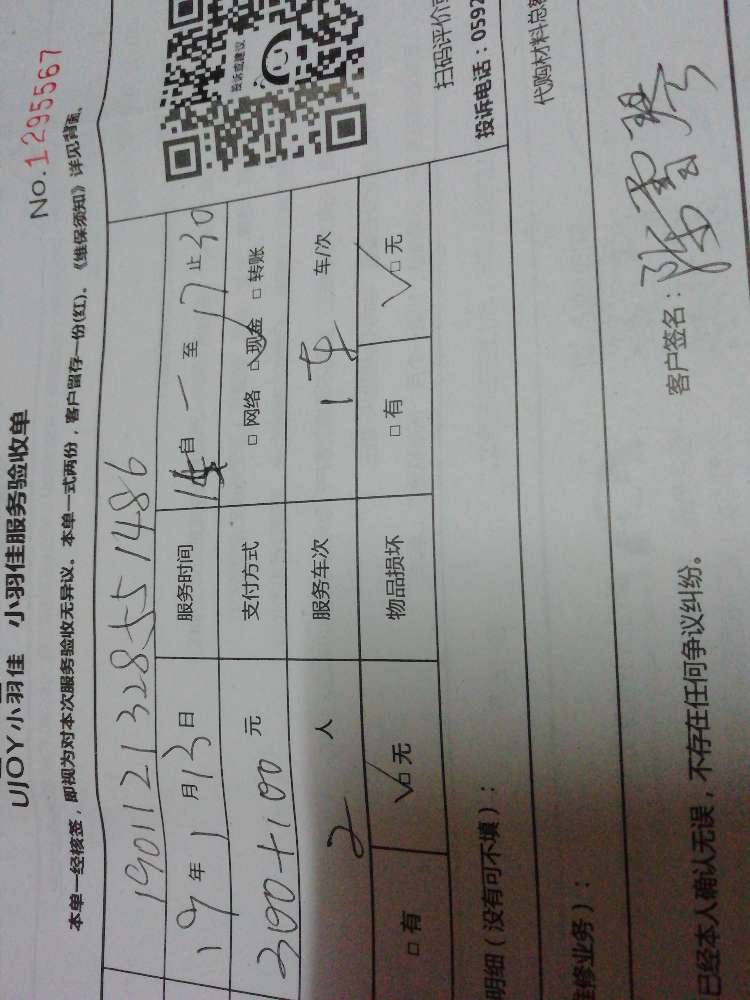 No.1295567
UJOY小羽佳 小羽佳服务验收单
本单一经核签，即视为对本次服务验收无异议。本单一式两份，客户留存一份(红)。《维保须知》详见背面。
1901121328551486
19年1月13日 服务时间 自 至17止30
300+100元 支付方式 □网络 □现金 □转账
2人 服务车次 1车 车/次
□有 □无 物品损坏 □有 □无
投诉或建议
扫码评价或
投诉电话：0592
明细（没有可不填）：
代购材料总额
维修业务）：
已经本人确认无误，不存在任何争议纠纷。
客户签名：